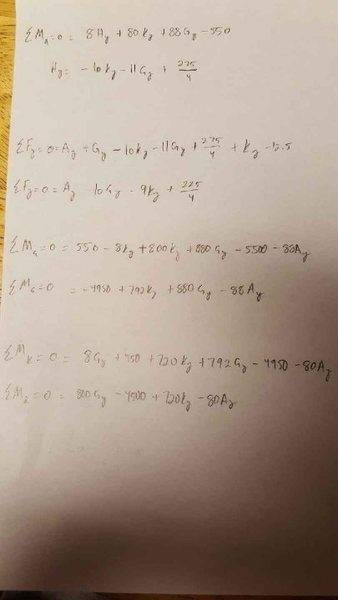 ΣM_A=0 = 8H_y + 80K_y + 88G_y - 550
H_y = -10K_y - 11G_y + 275/4
ΣF_y=0=A_y + G_y - 10K_y - 11G_y + 275/4 + K_y - 12.5
ΣF_y=0=A_y - 10G_y - 9K_y + 225/4
ΣM_G=0 = 550 - 8K_y + 800K_y + 880G_y - 5500 - 88A_y
ΣM_G=0 = -4950 + 792K_y + 880G_y - 88A_y
ΣM_K=0 = 8G_y + 450 + 720K_y + 792G_y - 4950 - 80A_y
ΣM_K=0 = 800G_y - 4500 + 720K_y - 80A_y